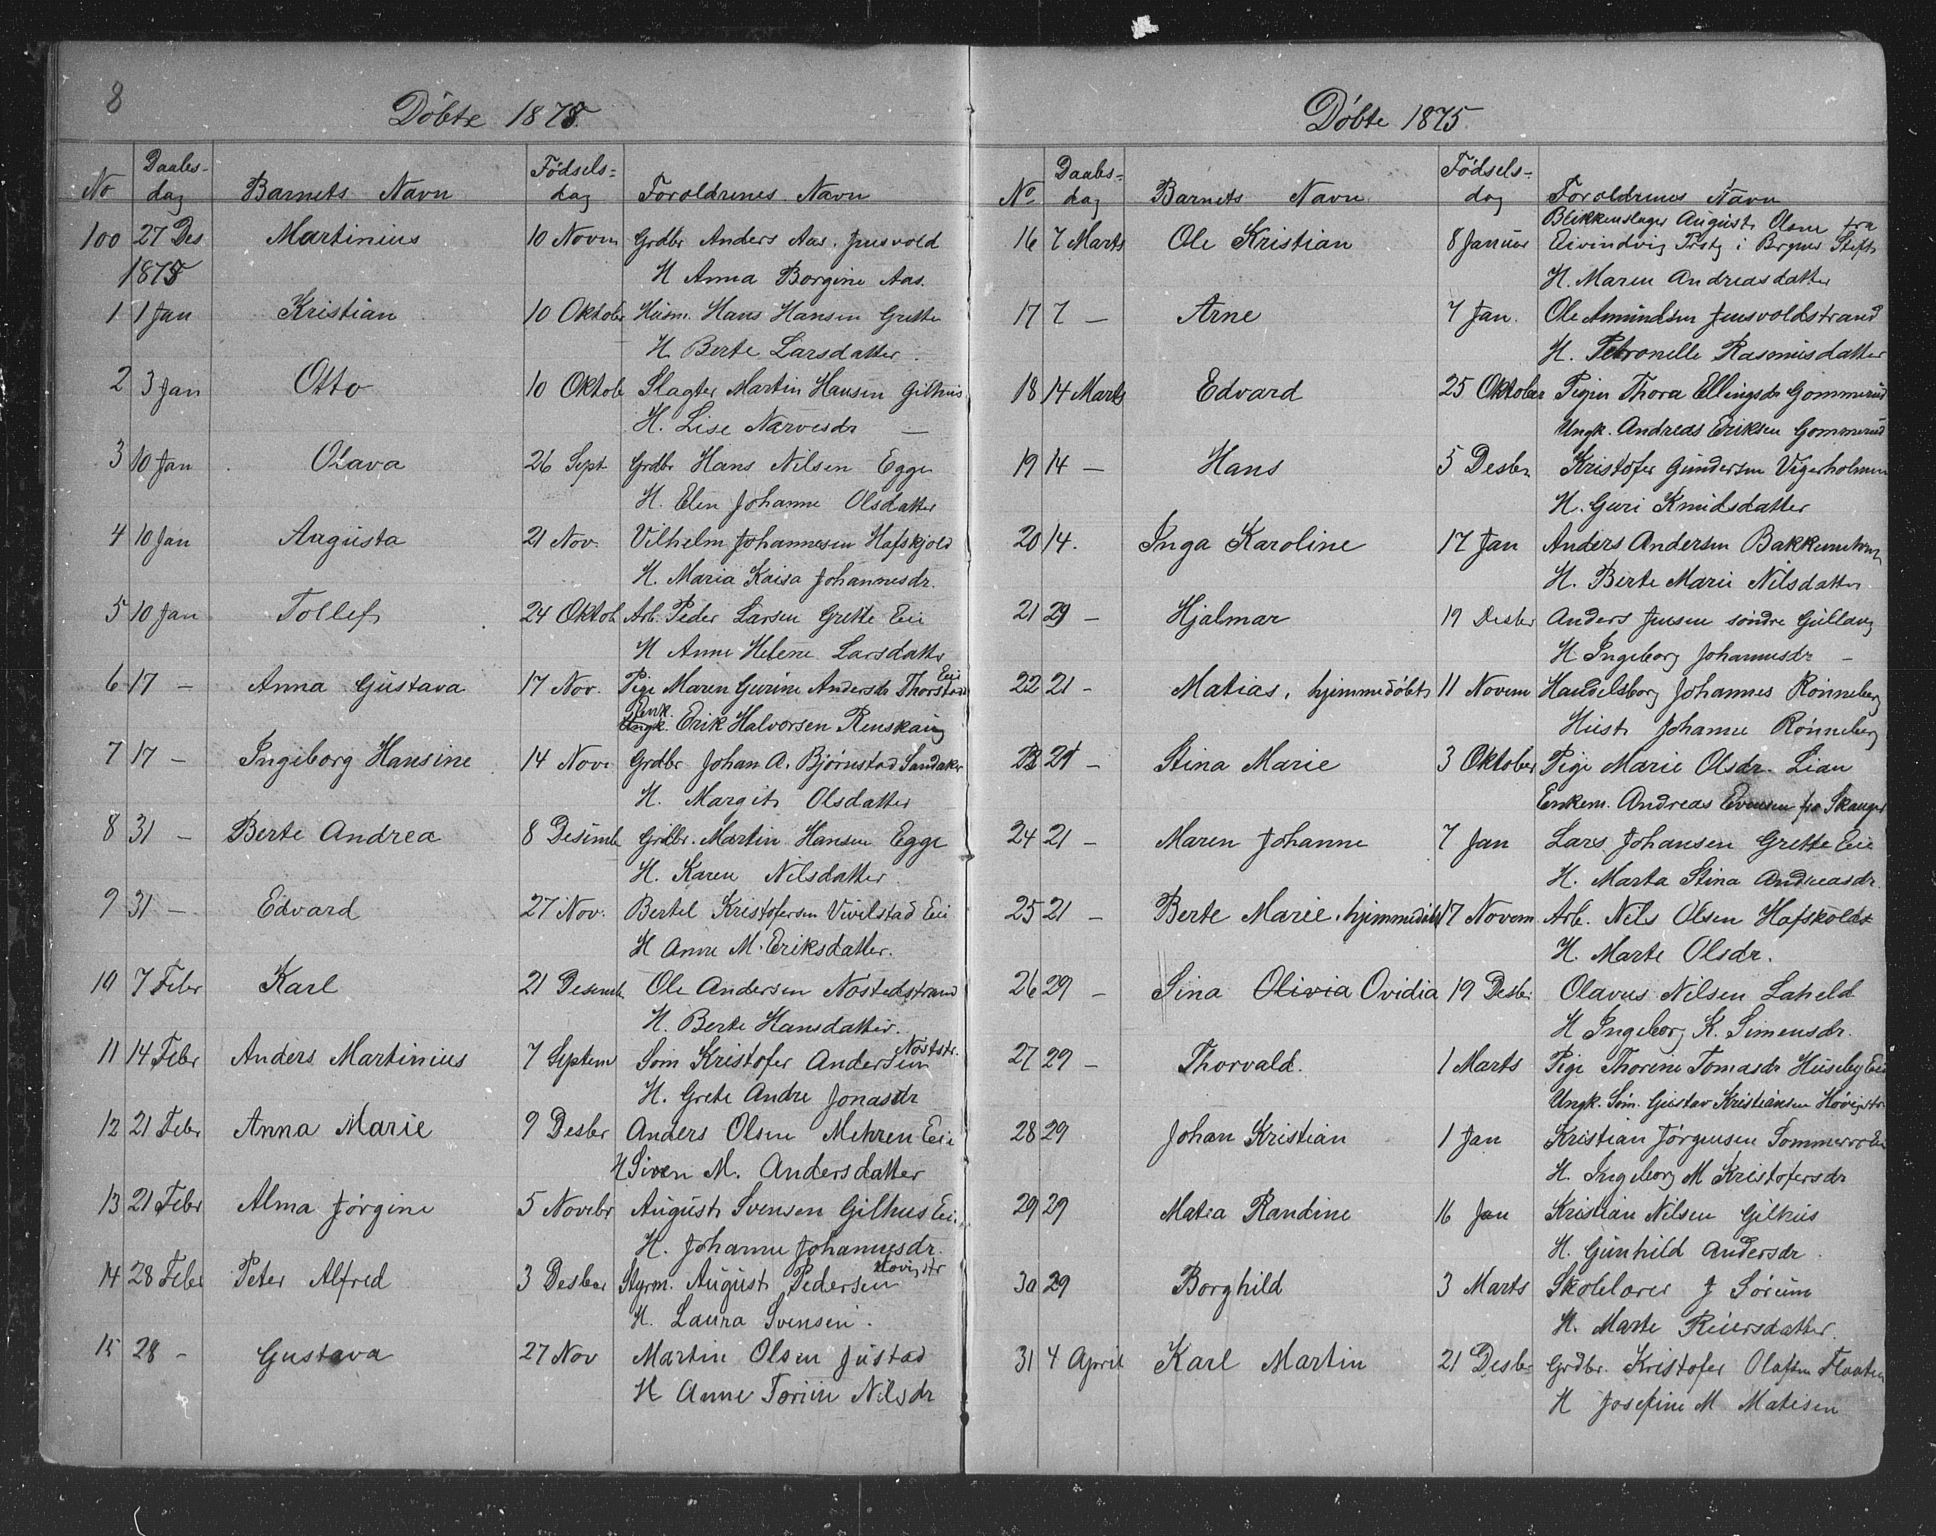 8
Döbte 1875
No Daabs-dag Barnets Navn Födsels-dag Foroldrenes Navn
100 27 Des Martinius 10 Novm Grdbr Anders Aas. Jusvold
H Anna Borgine Aas.
1875
1 1 Jan Kristian 10 Oktober Husm. Hans Hansen Grette
H. Berte Larsdatter.
2 3 Jan Otto 10 Oktob Slagter Martin Hansen Gilhus
H. Lise Narvesdr —
3 10 Jan Olava 26 Sept Grdbr Hans Nilsen Egge
H. Elen Johanne Olsdatter
4 10 Jan Augusta 21 Nov. Vilhelm Johannesen Hafskjold
H. Maria Kaisa Johannesdr.
5 10 Jan Tollef 24 Oktob Arb. Peder Larsen Grette Eie
H Anne Helene Larsdatter
6 17 — Anna Gustava 17 Nov. Pige Maren Gurine Andersdr Thorstad Eie
Ungk. Enk. Erik Halvorsen Renskaug
7 17 — Ingeborg Hansine 14 Nov. Grdbr Johan A. Bjørnstad Sandaker
H. Margit Olsdatter
8 31 — Berte Andrea 8 Desemb Grdbr. Martin Hansen Egge
H. Karen Nilsdatter.
9 31 — Edvard 27 Nov. Bertel Kristofersen Vivilstad Eie
H Anne M. Eriksdatter.
10 7 Febr Karl 21 Desemb Ole Andersen Nøstedstrand
H. Berte Hansdatter.
11 14 Febr Anders Martinius 7 Septem Søm Kristofer Andersen Nøststr.
H. Grete Andre Jonasdr
12 21 Febr Anna Marie 9 Desbr Anders Olsen Mehren Eie
H Siven M. Andersdatter
13 21 Febr Alma Jørgine 5 Novebr August Svensen Gilhus Eie
H. Johanne Johannesdr.
14 28 Febr Peter Alfred 3 Desber Styrm. August Pedersen Høvigstr
H. Laura Svensen.
15 28 — Gustava 27 Nov Martin Olsen Justad
H Anne Torine Nilsdr
Döbte 1875.
No. Daabs-dag Barnets Navn Födsels-dag Foroldrenes Navn
16 7 Marts Ole Kristian 8 Januar Blikkenslager August Olsen fra
Eivindvig Pstg i Brgens Stift
H. Maren Andreasdatter
17 7 — Arne 7 Jan. Ole Amundsen Jusvoldstrand
H. Petronelle Rasmusdatter
18 14 Marts Edvard 25 Oktober Pigen Thora Ellingsdr Gommerud
Ungk. Andreas Eriksen Gommerud
19 14 — Hans 5 Desbr Kristofer Gundersen Vigerholmen
H. Guri Knudsdatter
20 14. Inga Karoline 17 Jan Anders Andersen
H. Berte Marie Nilsdatter
21 29 — Hjalmar 19 Desbr Anders Jensen söndre Gullaug
H Ingeborg Johannesdr —
22 21 — Matias, hjemmedöbt 11 Novem Handelsborg Johannes Rønneberg
Hust. Johanne Rønneberg
23 21 — Stina Marie 3 Oktober Pige Marie Olsdr. Lian
Enkem. Andreas Evensen fra Skauger
24 21 — Maren Johanne 7 Jan Lars Johansen Grette Eie
H. Marta Stina Andreasdr.
25 21 — Berte Marie, hjemmedöbt 17 Novem Arb. Nils Olsen Hafskold
H. Marte Olsdr.
26 29 — Sina Olivia Ovidia 19 Desbr Olavus Nilsen Laheld
H Ingeborg K. Simensdr.
27 29 — Thorvald. 1 Marts Pige Thorine Tomasdr Huseby Eie
Ungk. Søm. Gustav Kristiansen Høvigstr
28 29 Johan Kristian 1 Jan Kristian Jørgensen Sommerro Eie
H. Ingeborg M Kristofersdr
29 29 Matea Randine 16 Jan Kristian Nilsen Gilhus
H. Gunhild Andersdr.
30 29 Borghild 3 Marts Skolelærer J Sørum
H. Marte Reiersdatter.
31 4 April Karl Martin 21 Desbr Grdbr. Kristofer Olafsen Flaaten
H Josefine M Matisen